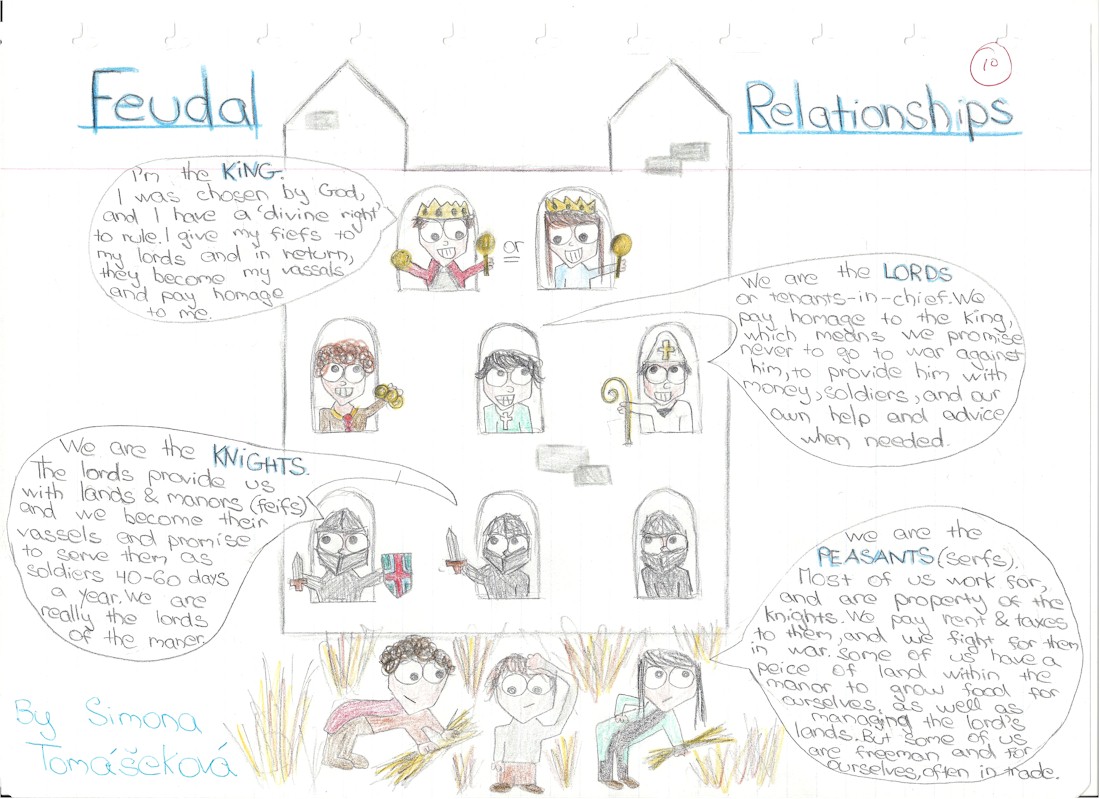 Feudal Relationships
10
I'm the KING.
I was chosen by God,
and I have a 'divine right'
to rule. I give my fiefs to
my lords and in return,
they become my vassals
and pay homage
to me.
or
We are the LORDS
or tenants-in-chief. We
pay homage to the King,
which means we promise
never to go to war against
him, to provide him with
money, soldiers, and our
own help and advice
when needed.
We are the KNIGHTS.
The lords provide us
with lands & manors (feifs)
and we become their
vassels and promise
to serve them as
soldiers 40-60 days
a year. We are
really the lords
of the maner.
We are the
PEASANTS (serfs).
Most of us work for,
and are property of the
knights. We pay rent & taxes
to them, and we fight for them
in war. Some of us have a
peice of land within the
manor to grow food for
ourselves, as well as
managing the lord's
lands. But some of us
are freeman and for
ourselves, often in trade.
By Simona
Tomášeková